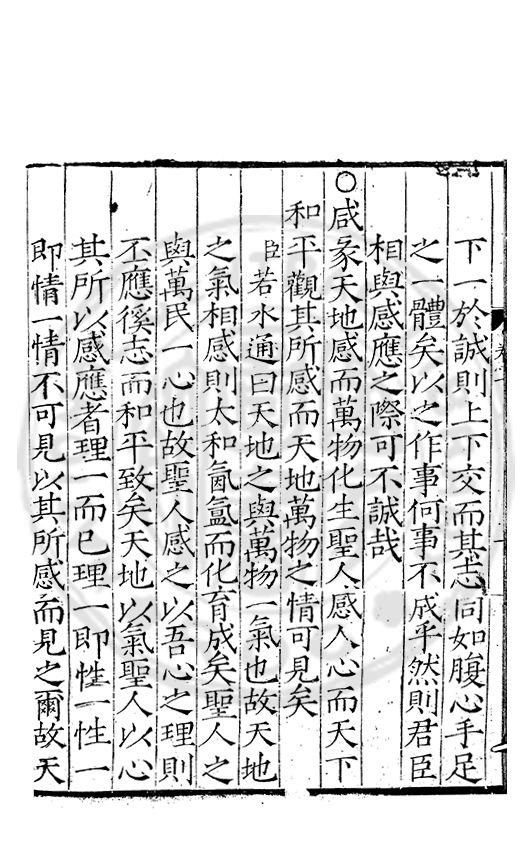 下一於誠則上下交而其志同如腹心手足
之一體矣以之作事何事不成乎然則君臣
相與感應之際可不誠哉
○咸彖天地感而萬物化生聖人感人心而天下
和平觀其所感而天地萬物之情可見矣
臣若水通曰天地之與萬物一氣也故天地
之氣相感則太和氤氳而化育成矣聖人之
與萬民一心也故聖人感之以吾心之理則
丕應徯志而和平致矣天地以氣聖人以心
其所以感應者理一而已理一即性一性一
即情一情不可見以其所感而見之爾故天